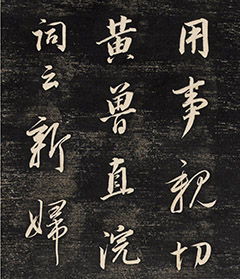 用事親切
黄魯直浣
詞云新婦